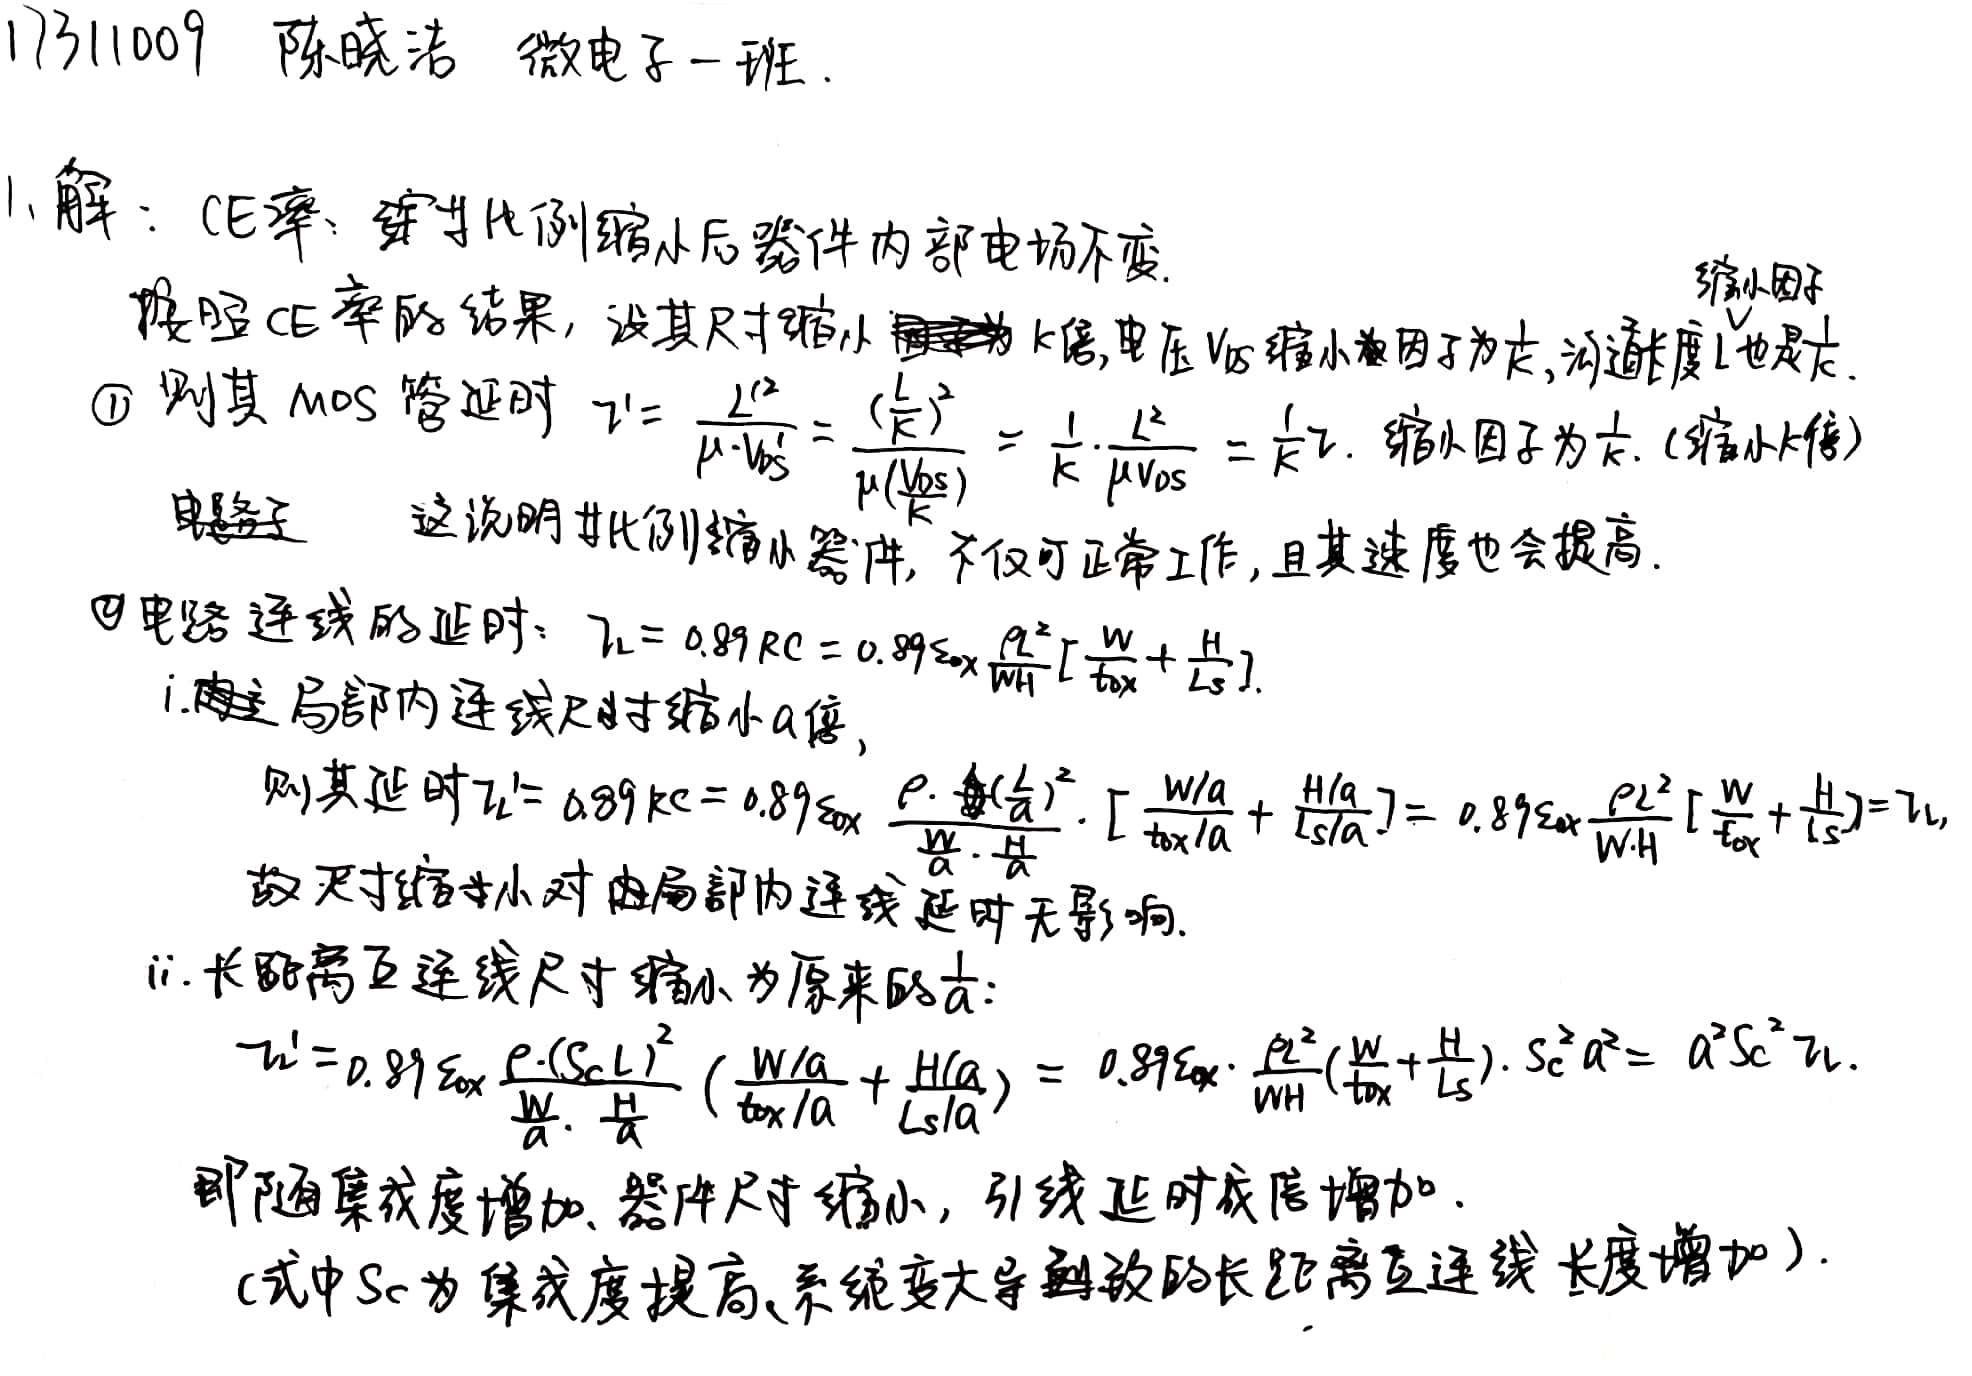 17311009 陈晓洁 微电子一班.
1、解: CE率: 等比例缩小后器件内部电场不变.
缩小因子
按照CE率的结果, 设其尺寸缩小 K倍, 电压 V_DS 缩小因子为 1/K, 沟道长度L也是 1/K.
① 则其 MOS 管延时 τ' = L'²/(μ·V_DS') = (L/K)²/(μ(V_DS/K)) = 1/K · L²/(μV_DS) = 1/K τ. 缩小因子为 1/K. (缩小K倍)
这说明等比例缩小器件, 不仅可正常工作, 且其速度也会提高.
② 电路连线的延时: τ_L = 0.89RC = 0.89ε_ox ρL²/(WH) [W/t_ox + H/L_s].
i. 局部内连线尺寸缩小a倍,
则其延时 τ_L' = 0.89RC = 0.89ε_ox (ρ·(L/a)²)/(W/a · H/a) · [(W/a)/(t_ox/a) + (H/a)/(L_s/a)] = 0.89ε_ox ρL²/(W·H) [W/t_ox + H/L_s] = τ_L,
故尺寸缩小对局部内连线延时无影响.
ii. 长距离互连线尺寸缩小为原来的 1/a:
τ_L' = 0.89ε_ox (ρ·(S_c L)²)/(W/a · H/a) ((W/a)/(t_ox/a) + (H/a)/(L_s/a)) = 0.89ε_ox · ρL²/(WH) (W/t_ox + H/L_s) · S_c² a² = a² S_c² τ_L.
即随集成度增加、器件尺寸缩小, 引线延时成倍增加.
(式中 S_c 为集成度提高、系统变大导致的长距离互连线长度增加).